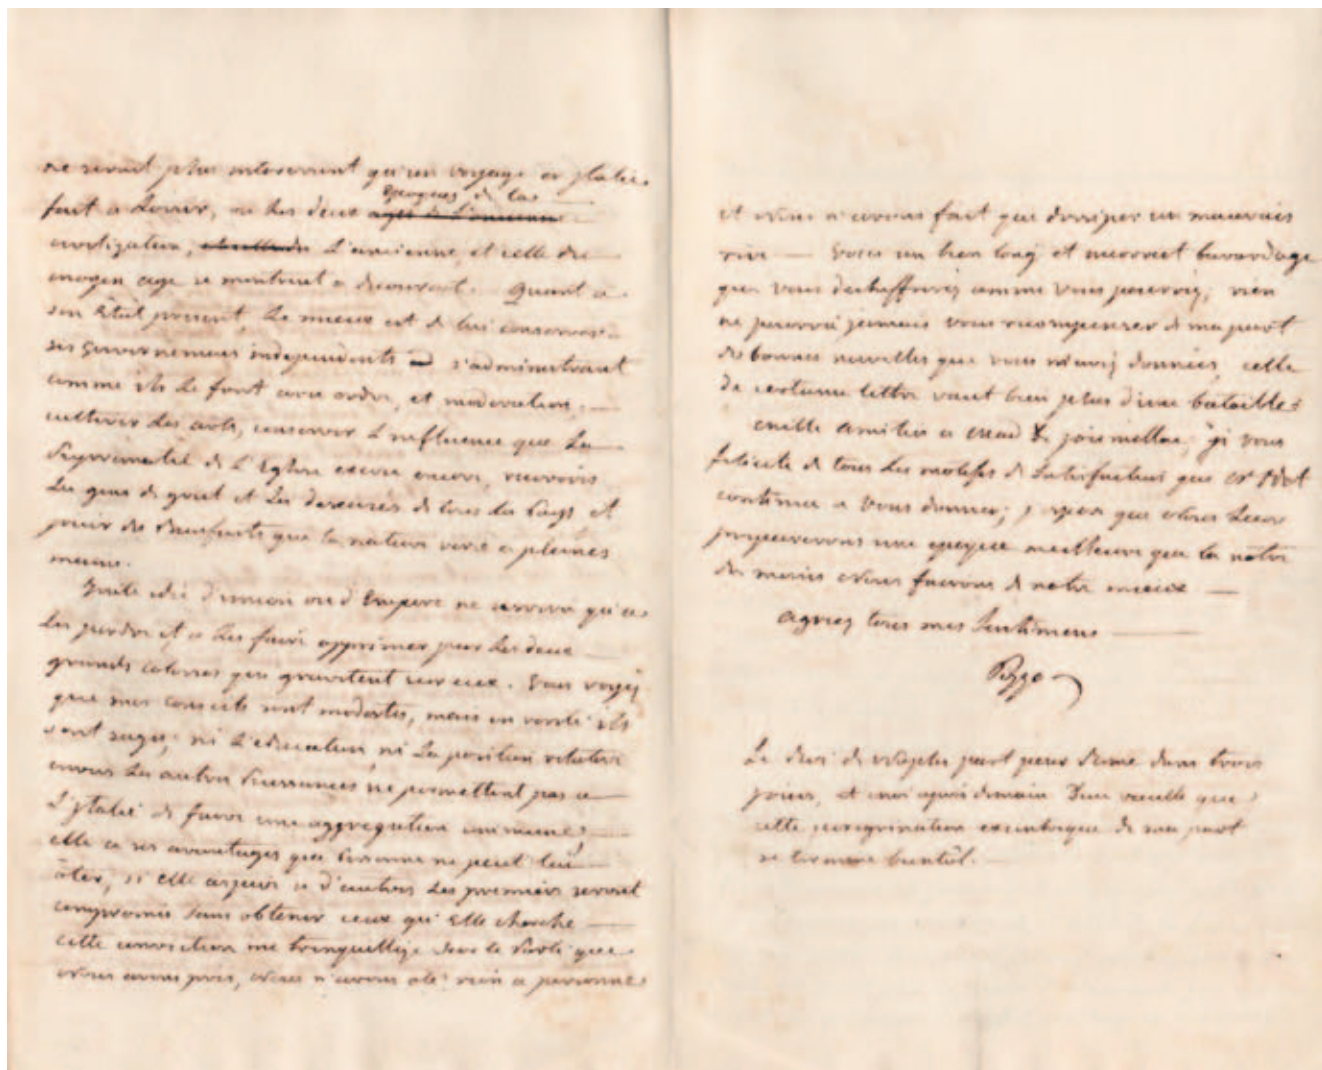 ne serait plus interessant qu'un voyage en Italie
fait a loisir, ou les deux epoques de la
civilisation, l'ancienne, et celle du
moyen age se montrent a decouvert. Quant a
son Etat present, le mieux est de lui conserver
ses Gouvernemens independents s'administrant
comme ils le font avec ordre, et moderation,
cultiver les arts, conserver l'influence que la
Suprematie de l'Eglise exerce encore, recevoir
les gens de gout et les desœuvrés de tous les Pays et
jouir des Bienfaits que la nature verse a pleines
mains.
Toute idée d'union ou d'Empire ne servira qu'a
les perdre et a les faire opprimer par les deux
grands colosses qui gravitent sur eux. Vous voyez
que mes conseils sont modestes, mais en verité ils
sont sages; ni l'education, ni la position relative
envers les autres Puissances ne permettent pas a
l'Italie de faire une aggregation commune;
elle a ses avantages que Personne ne peut lui
ôter, si elle aspire a d'autres les premiers seront
compromis sans obtenir ceux qu'elle cherche
cette conviction me tranquillize sur le Parti que
Nous avons pris, Nous n'avons oté rien a personne
et Nous n'avons fait que dissiper un mauvais
rêve — Voici un bien long et incorrect bavardage
que vous dechiffrerez comme vous pourrez; rien
ne pourra jamais vous recompenser de ma part
des bonnes nouvelles que vous m'avez données, celle
de certaine lettre vaut bien plus d'une bataille.
mille amitiés a je vous
felicite de tous les motifs de Satisfaction que
continue a vous donner; j'espere que Nous Leur
preparerons une epoque meilleure que la notre
du moins Nous ferons de notre mieux —
agreez tous mes Sentimens
Pozzo
Le Duc de part pour Rome dans trois
jours, et moi après demain. Dieu veuille que
cette peregrination de ma part
se termine bientôt.